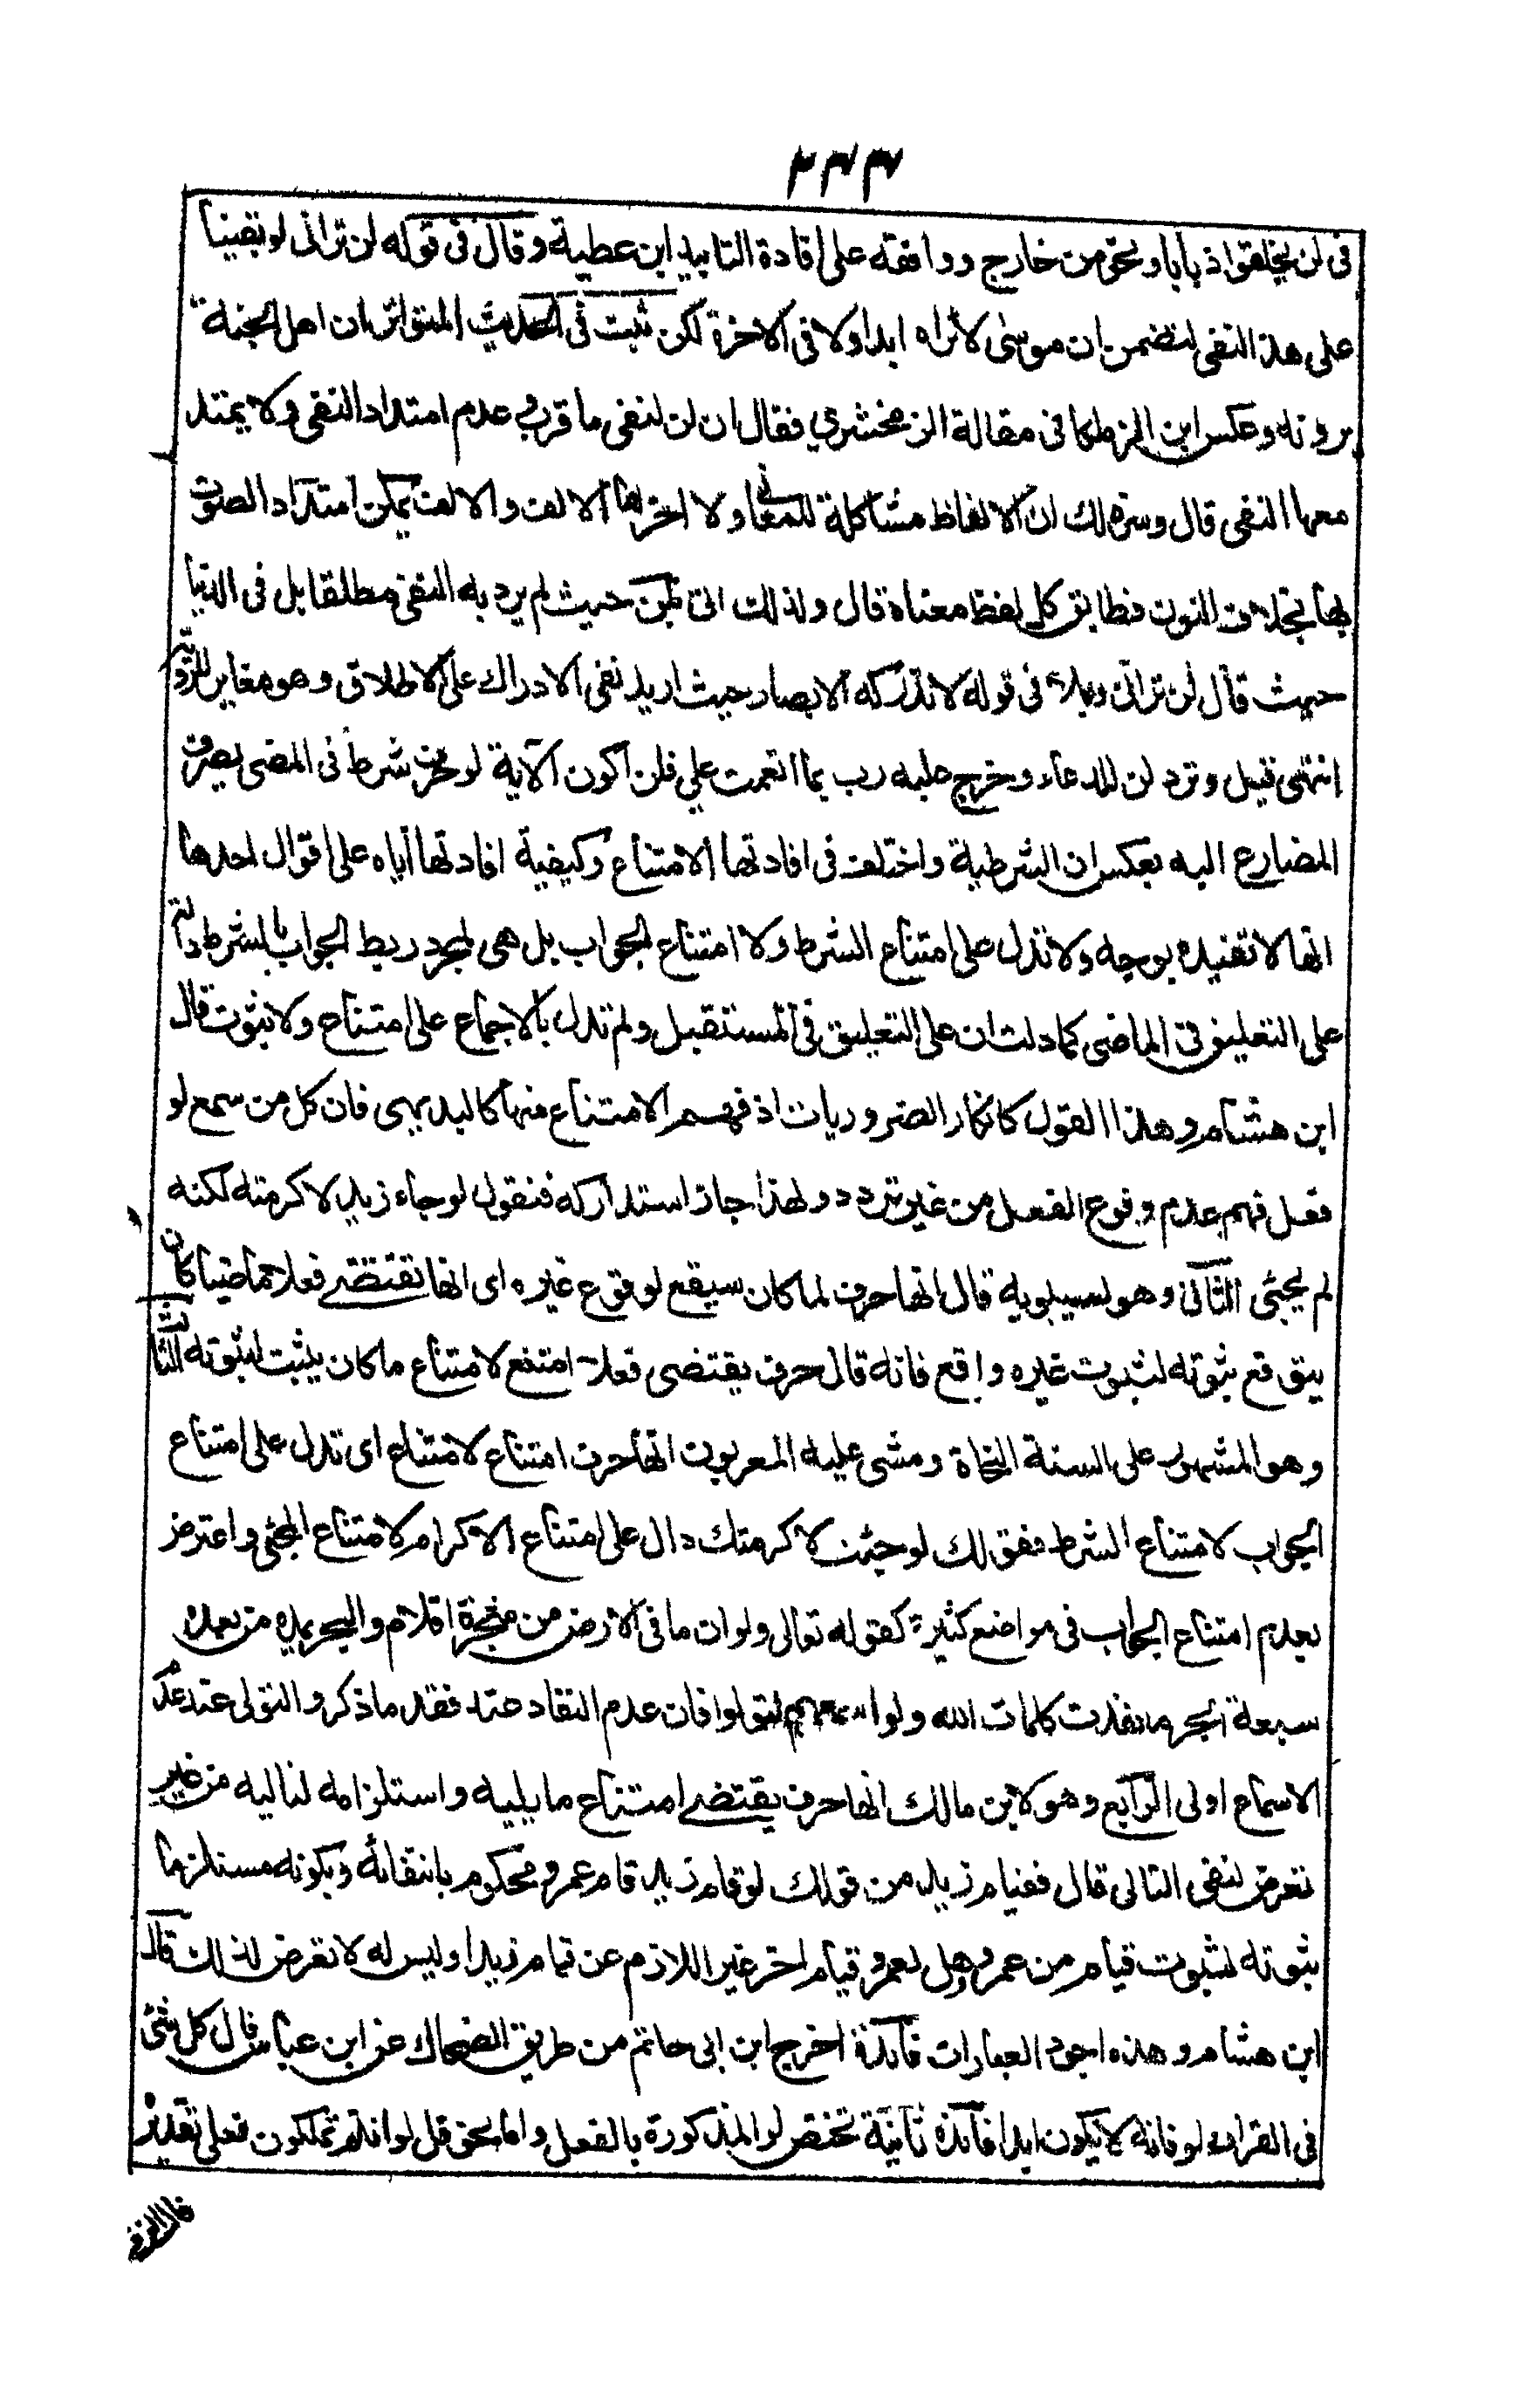 ٢٣٣
فى لن يخلقوا ذبابا ونحوه من خارج ووافقه على افادة التابيد ابن عطية وقال فى قوله لن ترانى لو بقينا
على هذا النفى لتضمن ان موسى لا يراه ابدا ولا فى الاخرة لكن ثبت فى الحديث المتواتر ان اهل الجنة
يرونه وعكس ابن الزملكانى مقالة الزمخشري فقال ان لن لنفى ما قرب وعدم امتداد النفى ولا يمتد
معها النفى قال وسر ذلك ان الالفاظ مشاكلة للمعانى ولا اخرها الالف والالف يمكن امتداد الصوت
بها بخلاف النون فطابق كل لفظ معناه قال ولذلك اتى بلن حيث لم يرد به النفى مطلقا بل فى الدنيا
حيث قال لن ترانى وبلا فى قوله لا تدركه الابصار حيث اريد نفى الادراك على الاطلاق وهو مغاير للرؤية
انتهى قيل وترد لن للدعاء وخرج عليه رب بما انعمت علي فلن اكون الآية لو حرف شرط فى المضى يصرف
المضارع اليه بعكس ان الشرطية واختلف فى افادتها الامتناع وكيفية افادتها اياه على اقوال احدها
انها لا تفيده بوجه ولا تدل على امتناع الشرط ولا امتناع الجواب بل هى لمجرد ربط الجواب بالشرط دالة
على التعليق فى الماضى كما دلت ان على التعليق فى المستقبل ولم تدل بالاجماع على امتناع ولا ثبوت قال
ابن هشام وهذا القول كانكار الضروريات اذ فهم الامتناع منها كالبديهى فان كل من سمع لو
فعل فهم عدم وقوع الفعل من غير تردد ولهذا جاز استدراكه فنقول لو جاء زيد لاكرمته لكنه
لم يجئى الثانى وهو لسيبويه قال انها حرف لما كان سيقع لوقوع غيره اى انها تقتضے فعلا ماضيا كان
يتوقع ثبوته لثبوت غيره واقع فانه قال حرف يقتضى فعلا امتنع لامتناع ما كان يثبت لثبوته الثالث
وهو المشهور على السنة النحاة ومشى عليه المعربون انها حرف امتناع لامتناع اى تدل على امتناع
الجواب لامتناع الشرط فقولك لو جئت لاكرمتك دال على امتناع الاكرام لامتناع المجئى واعترض
بعدم امتناع الجواب فى مواضع كثيرة كقوله تعالى ولو ان ما فى الارض من شجرة اقلام والبحر يمده من بعده
سبعة ابحر ما نفدت كلمات الله ولو اسمعهم لتولوا فان عدم النفاد عند فقد ما ذكر والتولى عند عدم
الاسماع اولى الرابع وهو لابن مالك انها حرف يقتضے امتناع ما يليه واستلزامه لتاليه من غير
تعرض لنفى التالى قال فقيام زيد من قولك لو قام زيد قام عمرو محكوم بانتفائه وبكونه مستلزما
ثبوته لثبوت قيام من عمرو وهل لعمرو قيام اخر غير اللازم عن قيام زيد او ليس له لا تعرض لذلك قال
ابن هشام وهذه اجود العبارات فائدة اخرج ابن ابى حاتم من طريق الضحاك عن ابن عباس قال كل شئ
فى القران لو فانه لا يكون ابدا فائدة ثانية تختص لو المذكورة بالفعل واما نحو قل لو انتم تملكون فعلى تقديره
قال الزمخ